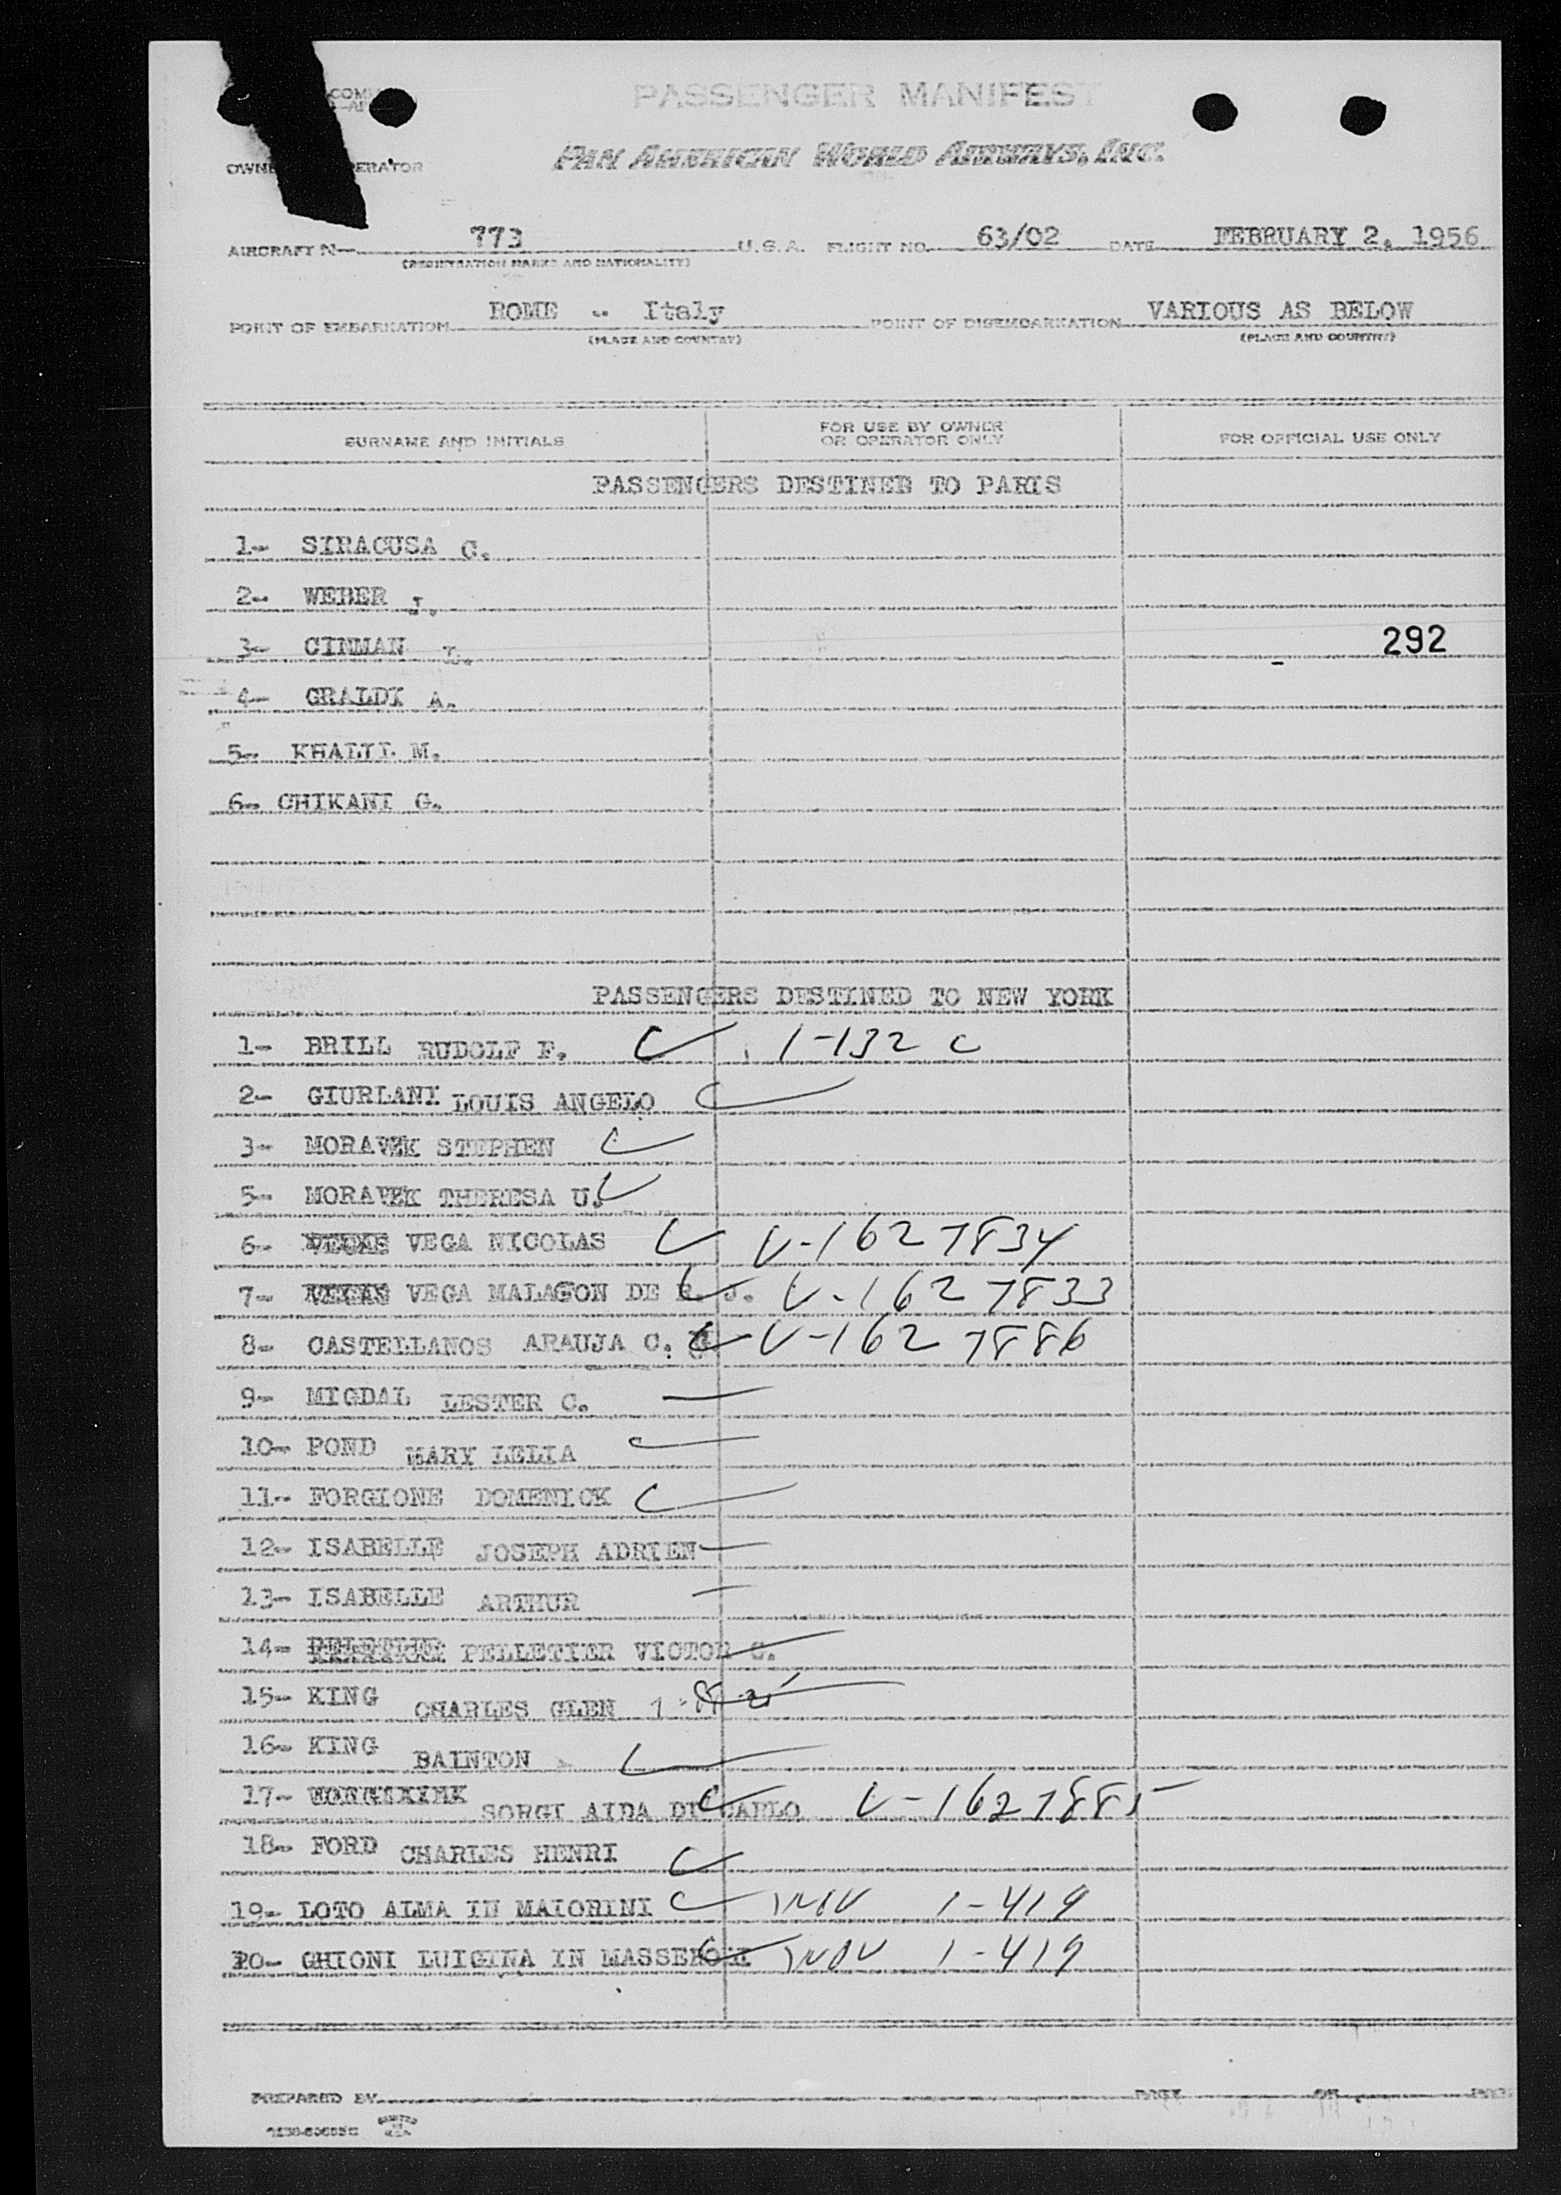 PASSENGER MANIFEST
PAN AMERICAN WORLD AIRWAYS, INC.
AIRCRAFT N- 773 U.S.A. FLIGHT NO. 63/02 DATE FEBRUARY 2, 1956
(REGISTRATION MARKS AND NATIONALITY)
POINT OF EMBARKATION ROME - Italy POINT OF DISEMBARKATION VARIOUS AS BELOW
(PLACE AND COUNTRY) (PLACE AND COUNTRY)
SURNAME AND INITIALS FOR USE BY OWNER OR OPERATOR ONLY FOR OFFICIAL USE ONLY
PASSENGERS DESTINED TO PARIS
1- SIRACUSA C.
2- WEBER J.
3- CINMAN I. 292
4- GRALDI A.
5- KHALIL M.
6- CHIKANI G.
PASSENGERS DESTINED TO NEW YORK
1- BRILL RUDOLF F. 1-132 C
2- GIURLANI LOUIS ANGELO
3- MORAVEK STEPHEN
5- MORAVEK THERESA U.
6- VEGA NICOLAS V-1627834
7- VEGA MALAGON DE R. J. V-1627833
8- CASTELLANOS ARAUJA C. V-1627886
9- MIGDAL LESTER C.
10- POND MARY LELIA
11- FORGIONE DOMENICK
12- ISABELLE JOSEPH ADRIEN
13- ISABELLE ARTHUR
14- PELLETIER VICTOR C.
15- KING CHARLES GLEN
16- KING BAINTON
17- SORGI AIDA DI CARLO V-1627885
18- FORD CHARLES HENRI
19- LOTO ALMA IN MAIORINI 1-419
20- GHIONI LUIGINA IN MASSERONI 1-419
PREPARED BY DATE